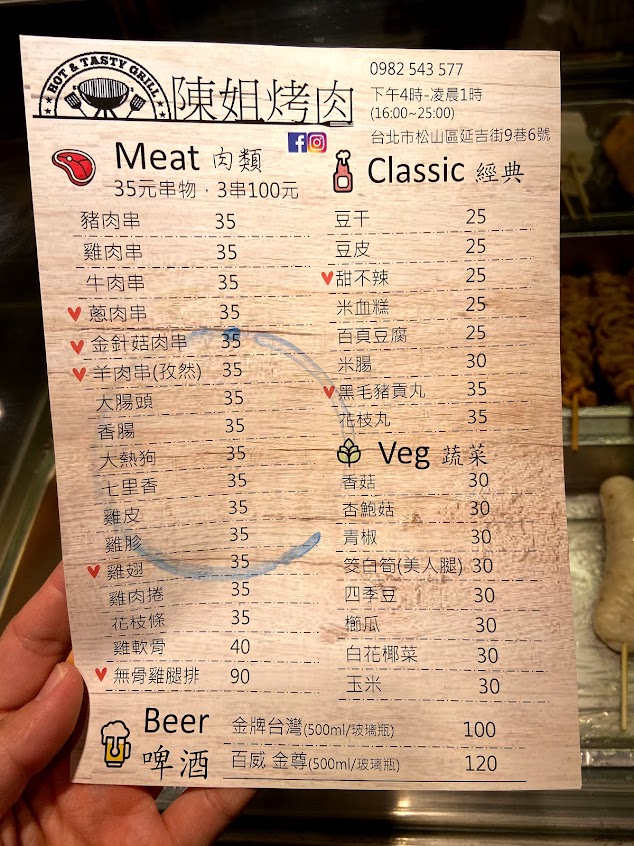 HOT & TASTY GRILL
陳姐烤肉
0982 543 577
下午4時-凌晨1時
(16:00~25:00)
台北市松山區延吉街9巷6號
Meat 肉類
35元串物·3串100元
豬肉串 35
雞肉串 35
牛肉串 35
蔥肉串 35
金針菇肉串 35
羊肉串(孜然) 35
大腸頭 35
香腸 35
大熱狗 35
七里香 35
雞皮 35
雞胗 35
雞翅 35
雞肉捲 35
花枝條 35
雞軟骨 40
無骨雞腿排 90
Classic 經典
豆干 25
豆皮 25
甜不辣 25
米血糕 25
百頁豆腐 25
米腸 30
黑毛豬貢丸 35
花枝丸 35
Veg 蔬菜
香菇 30
杏鮑菇 30
青椒 30
筊白筍(美人腿) 30
四季豆 30
櫛瓜 30
白花椰菜 30
玉米 30
Beer 啤酒
金牌台灣(500ml/玻璃瓶) 100
百威 金尊(500ml/玻璃瓶) 120